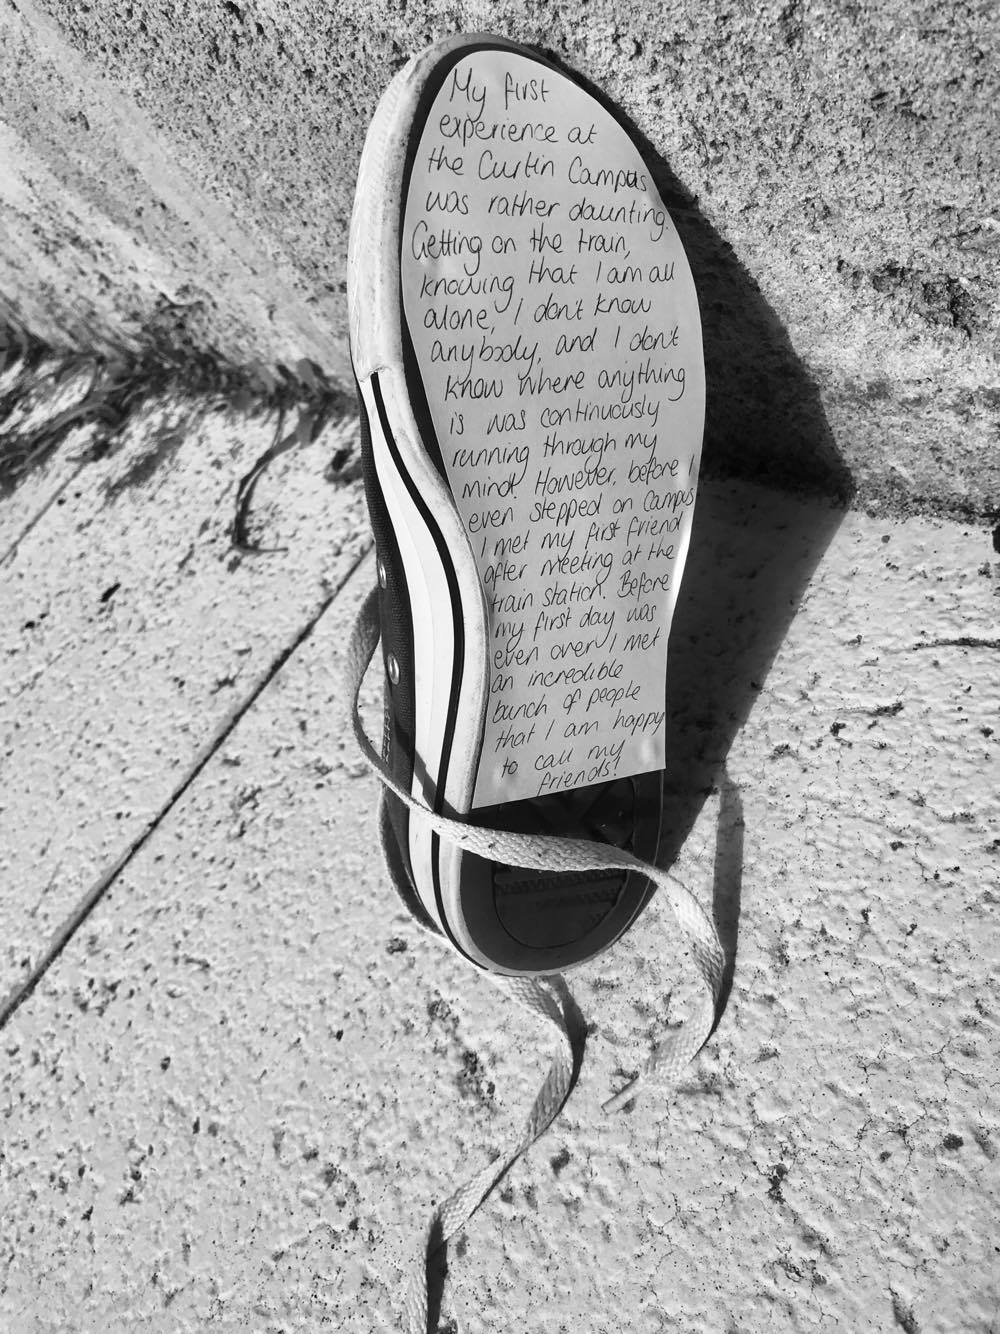 My first
experience at
the Curtin Campus
was rather daunting.
Getting on the train,
knowing that I am all
alone, I don't know
anybody, and I don't
know where anything
is was continuously
running through my
mind. However, before I
even stepped on campus
I met my first friend
after meeting at the
train station. Before
my first day was
even over I met
an incredible
bunch of people
that I am happy
to call my
friends!